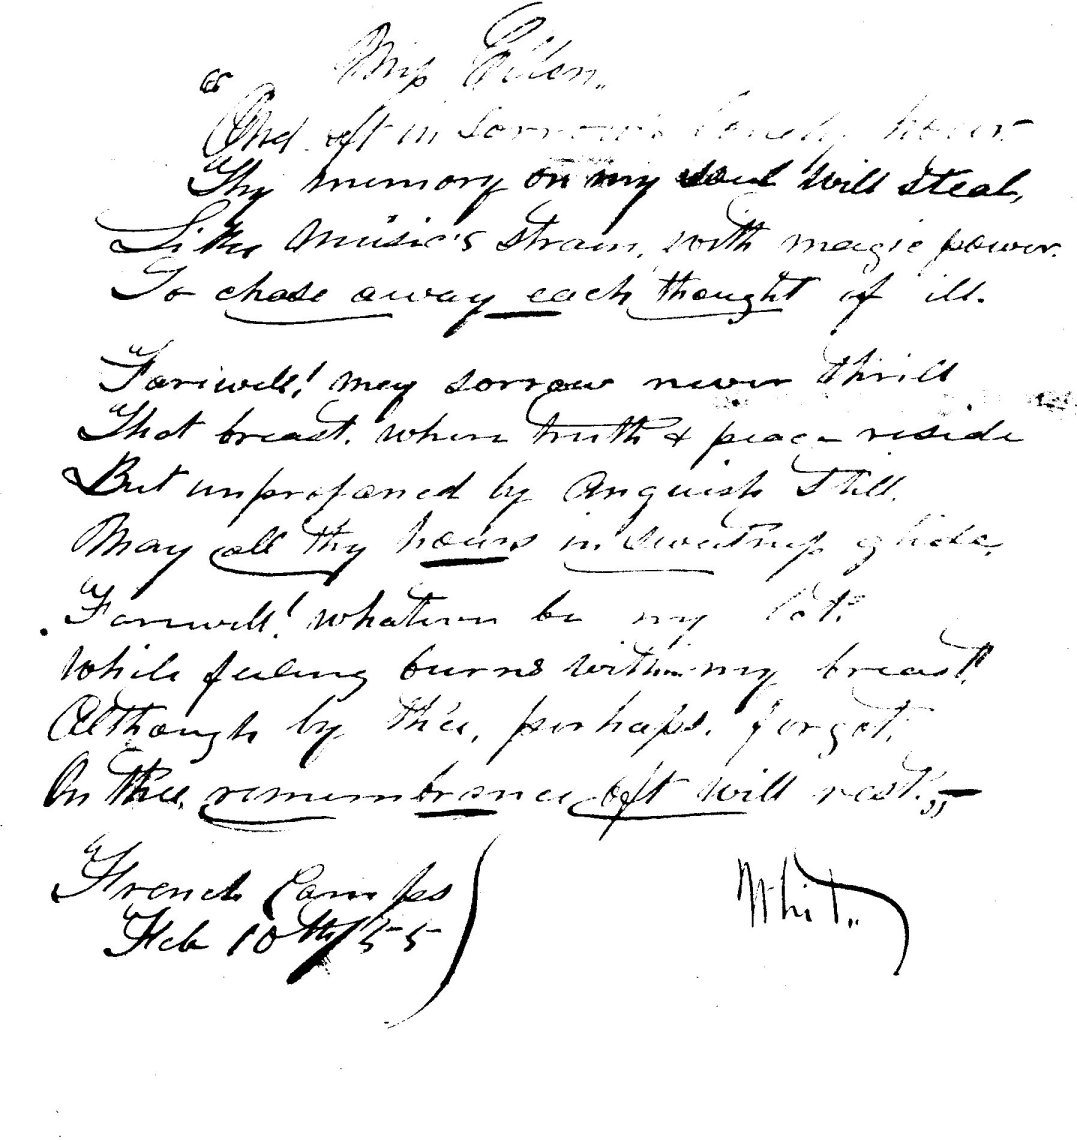 Miss Ellen.
"And oft in sorrow's lonely hour
Thy memory on my soul will steal,
Like music's strain, with magic power.
To chase away each thought of ill.
Farewell! may sorrow never thrill
That breast, where truth & peace reside
But unprofaned by anguish still,
May all thy hours in sweetness glide,
Farewell! whatever be my lot.
While feeling burns within my breast!
Although by thee, perhaps, forgot,
On thee, remembrance oft will rest." —
French Camps
Feb 10th/55
Whit..